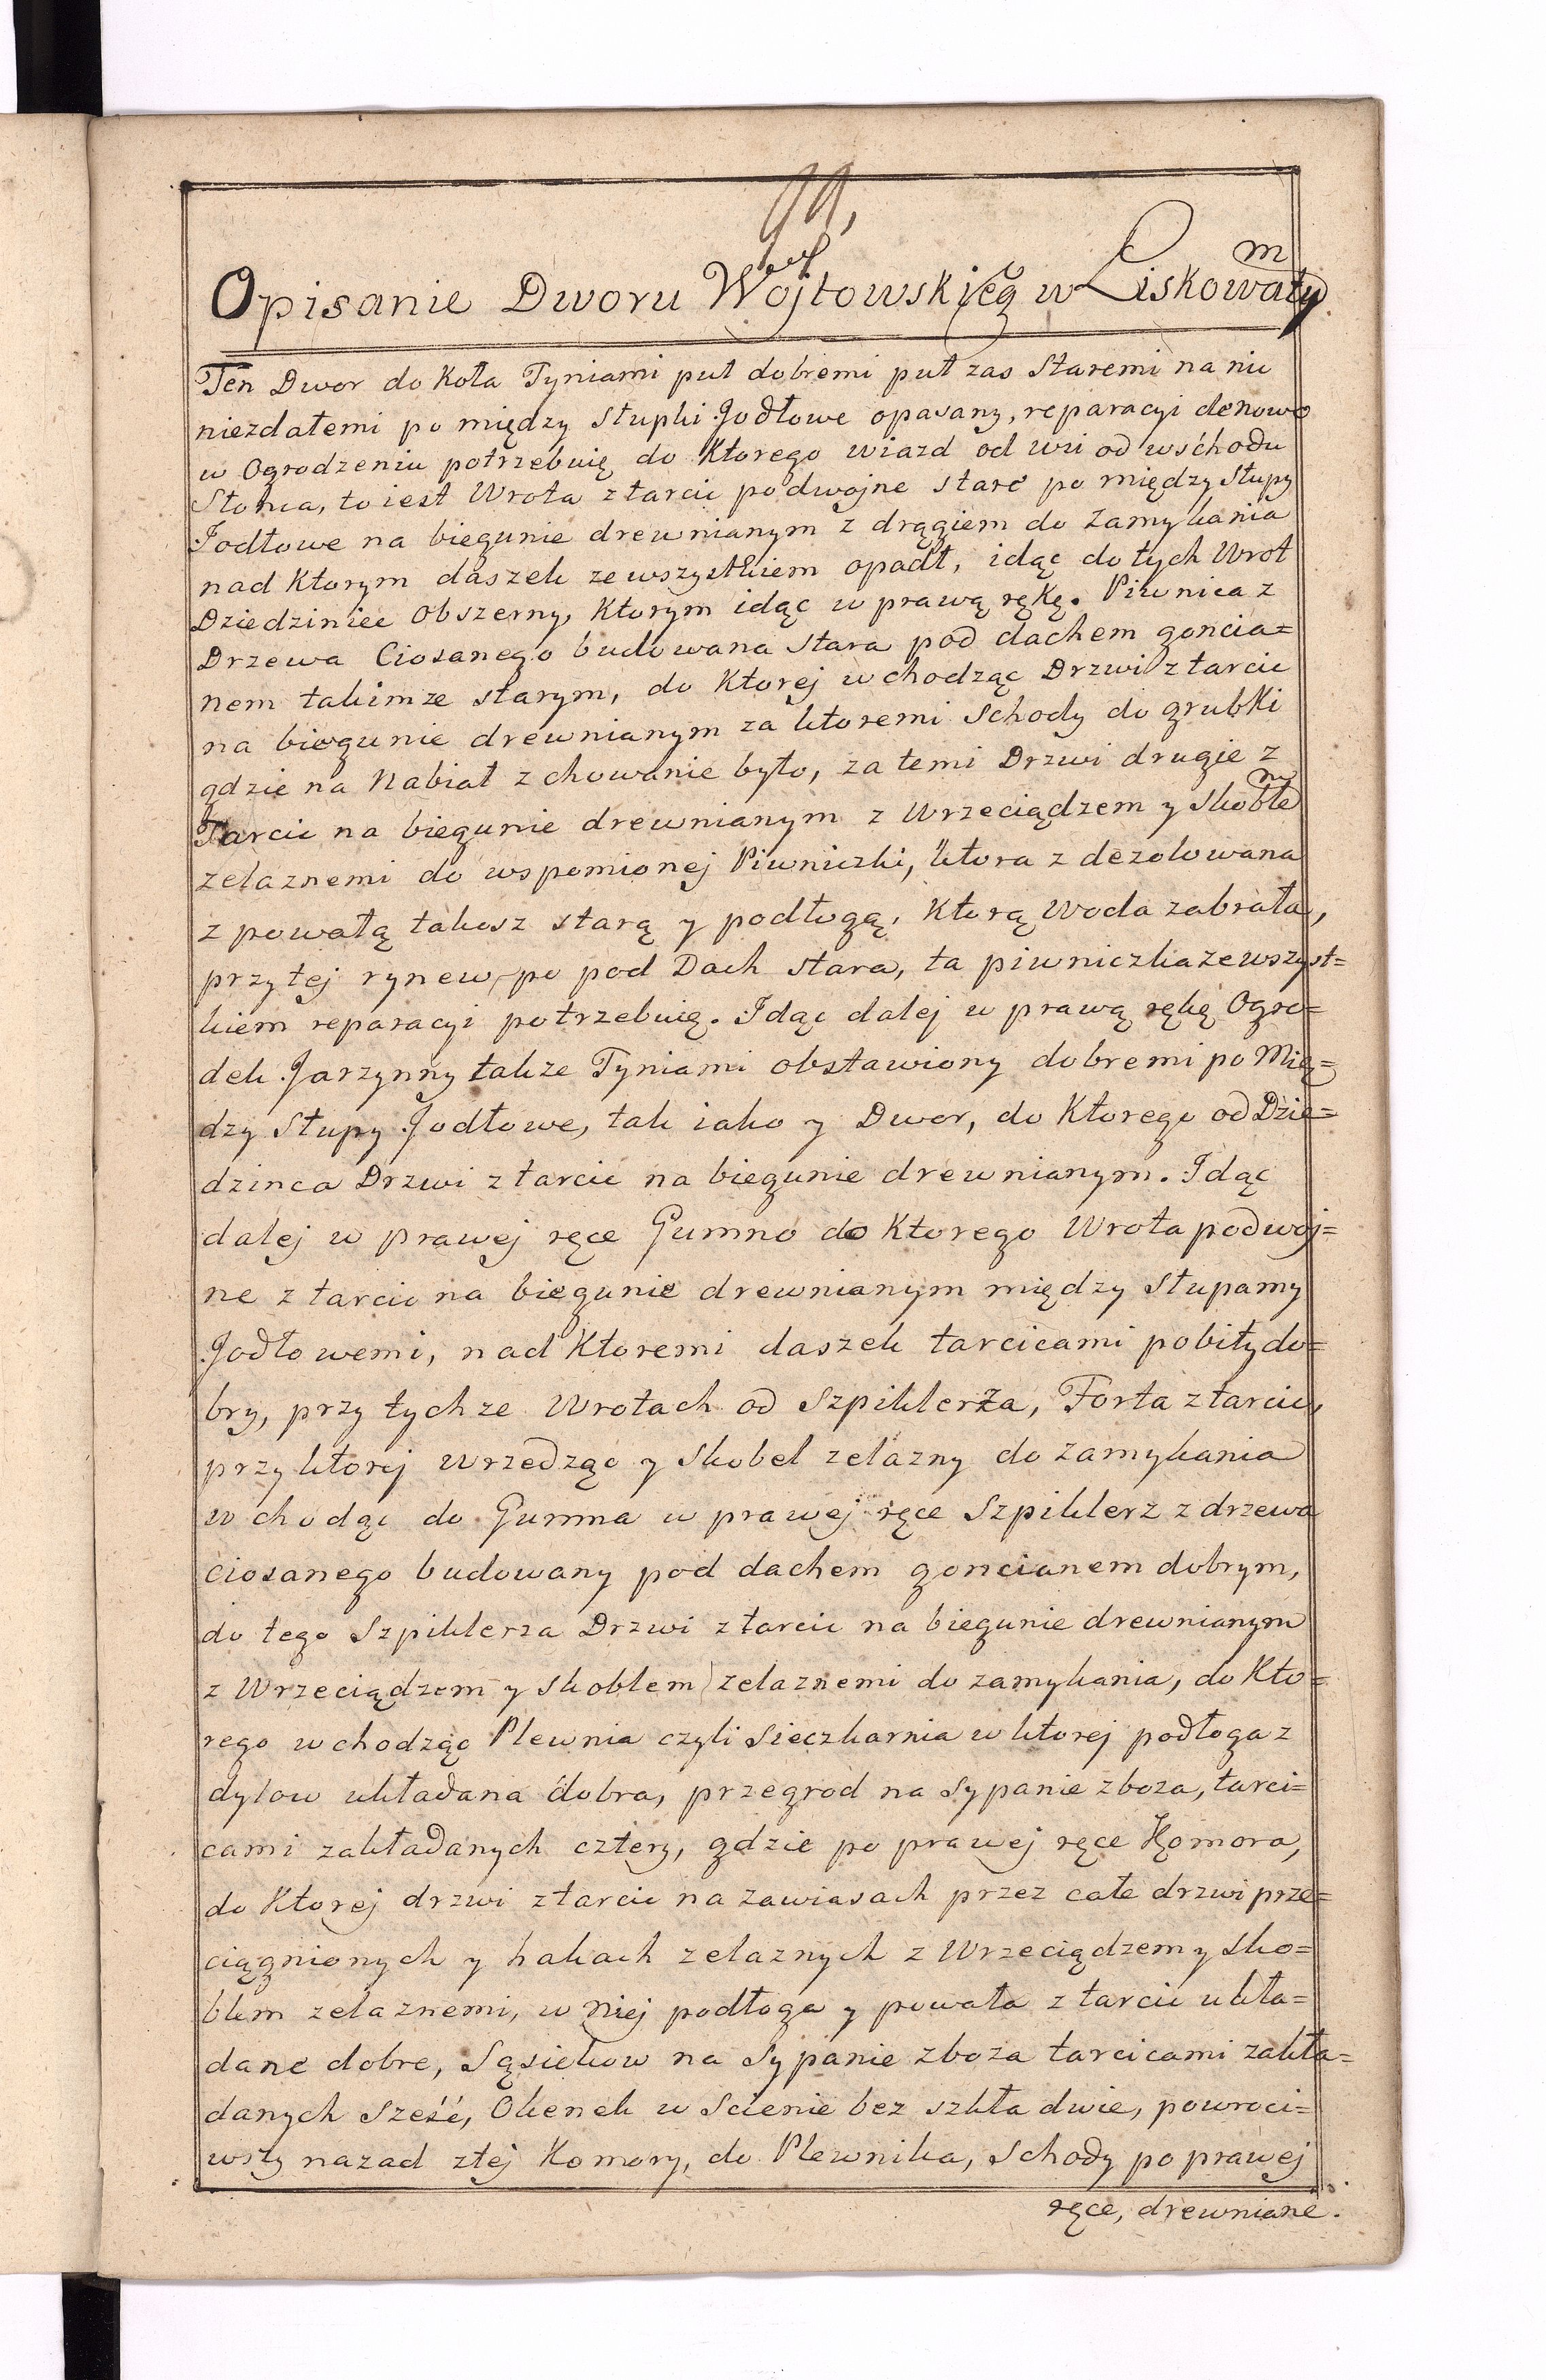 Opisanie Dworu Wojtowskieg w Liskowatym
Ten Dwor do Koła Tyniami puł dobremi puł zas Staremi na nic
niezdałemi po między słupki Jodłowe opasany, reparacyi denowo
w Ogrodzeniu potrzebuię do Ktorego wiazd od wsi od wśchodu
Słonca, to iest Wrota z tarcic podwojne stare po między Słupy
Jodłowe na biegunie drewnianym z drągiem do zamykania
nad Ktorym daszek ze wszystkiem opadł, idąc do tych Wrot
Dziedziniec Obszerny, Ktorym idąc w prawą rękę. Piwnica z
Drzewa Ciosanego budowana stara pod dachem goncia=
nem takimze starym, do Ktorej wchodząc Drzwi z tarcic
na biegunie drewnianym za ktoremi Schody do grubki
gdzie na Nabiał zchowanie było, za temi Drzwi drugie z
Tarcic na biegunie drewnianym z Wrzeciądzem y skoblem
zelaznemi do wspomionej Piwniczki, ktora z dezolowana
z powałą takosz starą y podłogą, Ktorą Woda zabrała,
przy tej rynew po pod Dach stara, ta piwniczka ze wszyst=
kiem reparacyi potrzebuię. Idąc dalej w prawą rękę Ogro=
dek Jarzynny takze Tyniami obstawiony dobremi po Mię=
dzy Słupy Jodłowe, tak iako y Dwor, do Ktorego od Dzie=
dzinca Drzwi z tarcic na biegunie drewnianym. Idąc
dalej w prawej ręce Gumno do Ktorego Wrota podwoj=
ne z tarcic na biegunie drewnianym między słupamy
Jodłowemi, nad Ktoremi daszek tarcicami pobity do=
bry, przy tychze Wrotach od Szpiklerza, Forta z tarcic,
przy ktorej wrzedząc y skobel zelazny do zamykania
wchodąc do Gumna w prawej ręce Szpiklerz z drzewa
ciosanego budowany pod dachem goncianem dobrym,
do tego Szpiklerza Drzwi z tarcic na biegunie drewnianym
z Wrzeciądzem y skoblem zelaznemi do zamykania, do Kto=
rego wchodząc Plewnia czyli sieczkarnia w ktorej podłoga z
dylow układana dobra, przegrod na sypanie zboza, tarci=
cami zakładanych cztery, gdzie po prawej ręce Komora,
do Ktorej drzwi z tarcic na zawiasach przez całe drzwi prze=
ciągnionych y hakach zelaznych z Wrzeciądzem y sko=
blem zelaznemi, w niej podłoga y powała z tarcic ukła=
dane dobre, Sąsiekow na sypanie zboza tarcicami zakła=
danych sześć, Okenek w scienie bez szkła dwie, powroci=
wszy nazad z tej Komory, do Plewnika, Schody po prawej
ręce, drewniane.